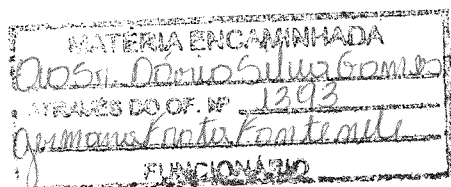 MATÉRIA ENCAMINHADA
Ao Sr. Dário Silva Gomes
ATRAVÉS DO OF. Nº 1393
Germana Fontenele
FUNCIONÁRIO